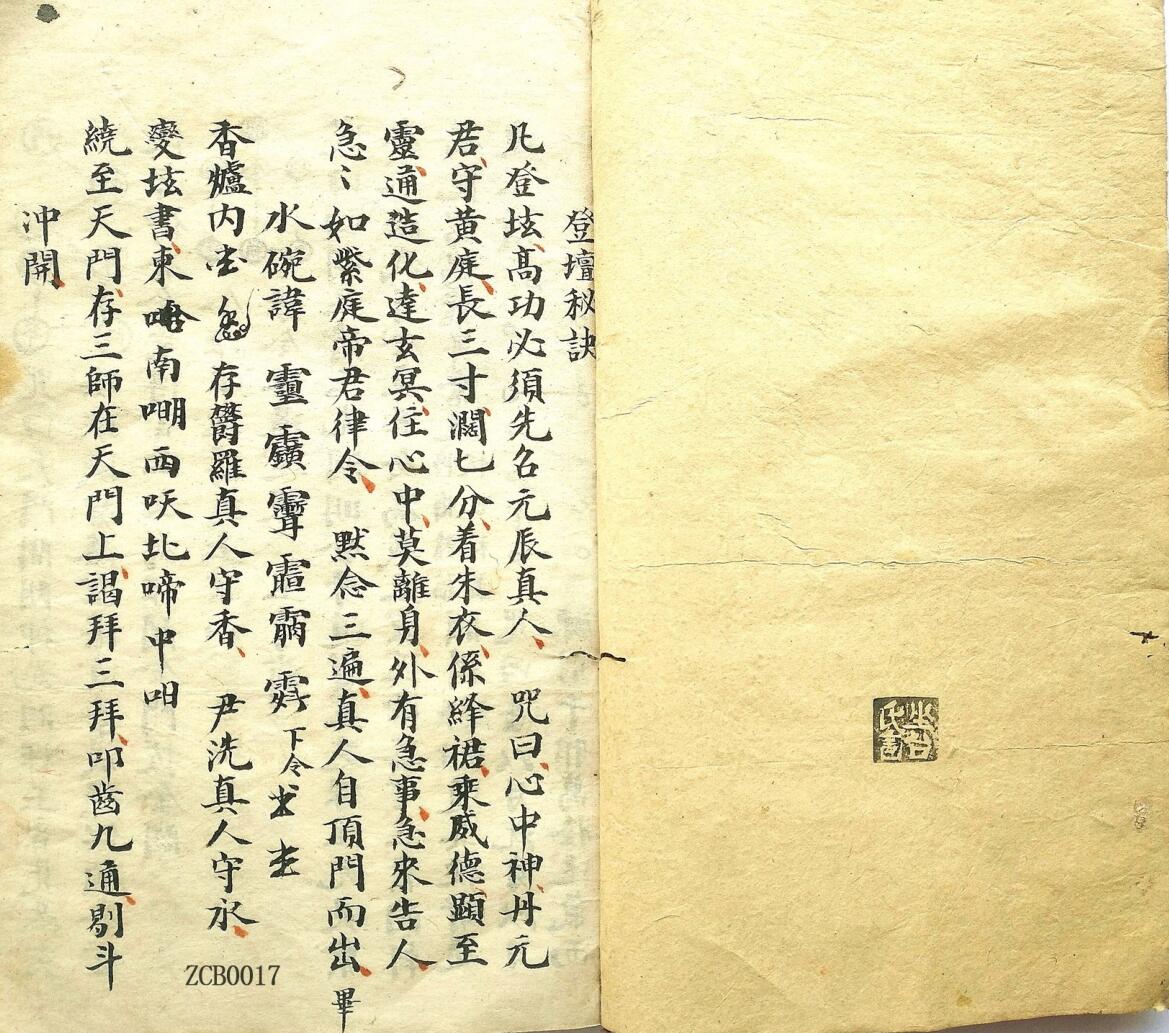 登壇秘訣
凡登坛高功必須先召元辰真人 咒曰心中神丹元
君守黃庭長三寸濶七分着朱衣係絳裙乘威德顯至
靈通造化達玄冥住心中莫離身外有急事急來告人
急〻如紫庭帝君律令 默念三遍真人自頂門而出畢
水碗諱 下令
香爐内 存欝羅真人守香 尹洗真人守水
变坛書東 南 西 北啼中呾
繞至天門存三師在天門上謁拜三拜叩齒九通剔斗
沖開
ZCB0017